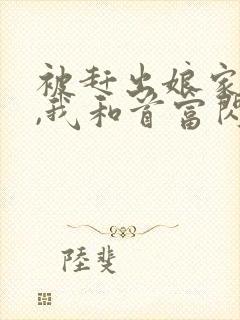 被赶出娘家
,我和首富闪
陸斐